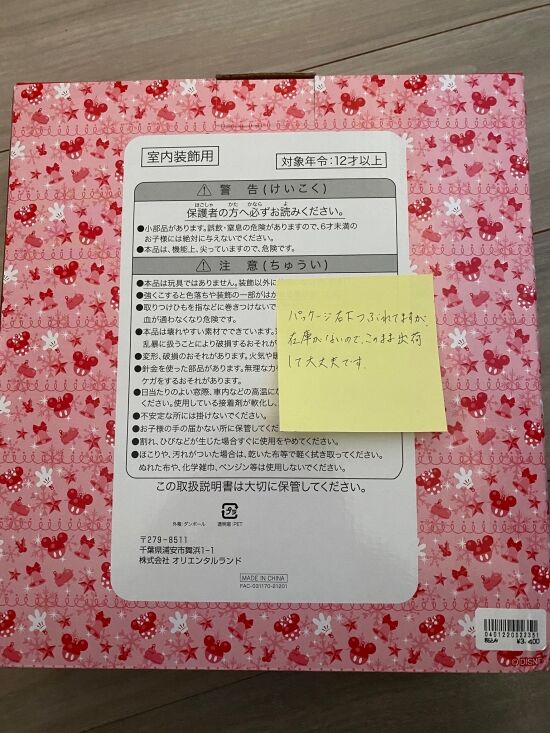 室内装飾用
対象年令:12才以上
⚠ 警 告 (けいこく)
保護者の方へ必ずお読みください。
ほごしゃ かた かなら よ
●小部品があります。誤飲・窒息の危険がありますので、6才未満の
お子様には絶対に与えないでください。
●本品は、機能上、尖っていますので、危険です。
⚠ 注 意 (ちゅうい)
●本品は玩具ではありません。装飾以外に
●強くこすると色落ちや装飾の一部がはが
●取りつけひもを指などに巻きつけないで
血が通わなくなり危険です。
●本品は壊れやすい素材でできています。
乱暴に扱うことにより破損するおそれが
●変形、破損のおそれがあります。火気や暖
●針金を使った部品があります。無理な力を
ケガをするおそれがあります。
●日当たりのよい窓際、車内などの高温にな
ください。使用している接着剤が軟化し、
●不安定な所には掛けないでください。
●お子様の手の届かない所に保管してくだ
●割れ、ひびなどが生じた場合すぐに使用をやめてください。
●ほこりや、汚れがついた場合は、乾いた布等で軽く拭き取ってください。
ぬれた布や、化学雑巾、ベンジン等は使用しないでください。
この取扱説明書は大切に保管してください。
パッケージ右下つぶれてますが、
在庫がないので、このまま出荷
して大丈夫です。
プラ
外箱:ダンボール 透明窓:PET
〒279-8511
千葉県浦安市舞浜1-1
株式会社 オリエンタルランド
MADE IN CHINA
FAC-031170-21201
0401220022351
税込み ¥3,400
©DISNE